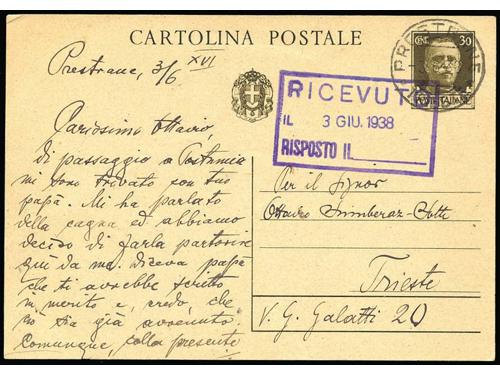 CARTOLINA POSTALE
CENT. 30
POSTE ITALIANE
Prestrane, 3/6 XVI
RICEVUTO
IL 3 GIU. 1938
RISPOSTO IL
Carissimo Ottavio,
di passaggio a Postumia
mi sono trovato con tuo
papà. Mi ha parlato
della cagna ed abbiamo
deciso di farla partorire
qui da me. Diceva papà
che ti avrebbe scritto
in merito e, credo, che
ciò sia già avvenuto.
Comunque, colla presente
Per il Signor
Ottavio
Trieste
V. G. Galatti 20